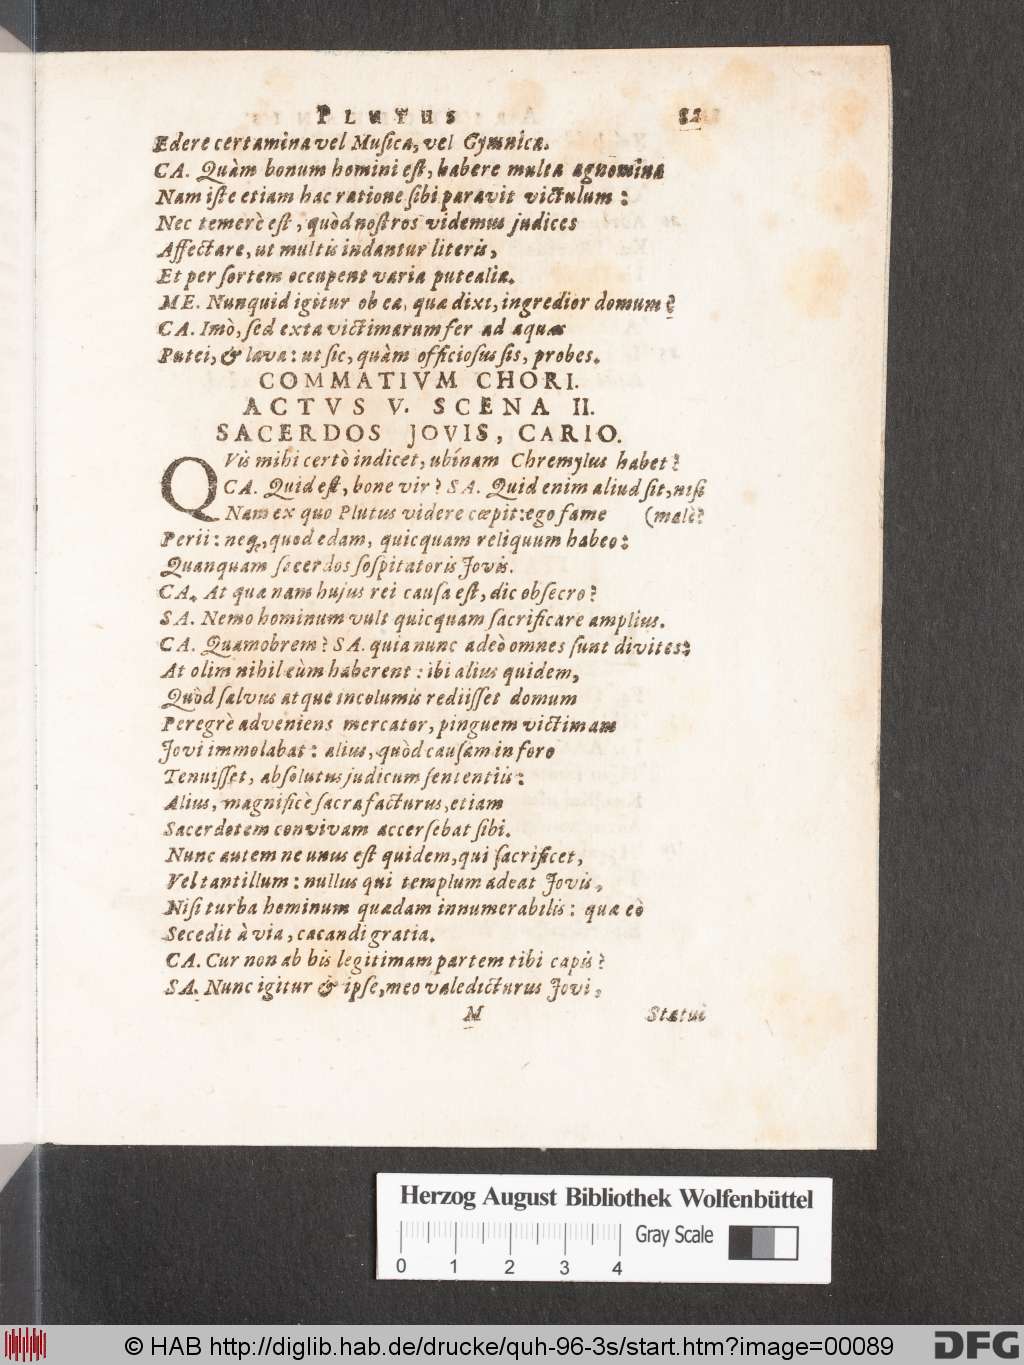 PLUTUS
Edere certamina vel Musica, vel Gymnica.
CA. Quàm bonum homini est, habere multa agnomina
Nam iste etiam hac ratione sibi paravit victulum:
Nec temerè est, quòd nostros videmus judices
Affectare, ut multis indantur literis,
Et per sortem occupent varia putealia.
ME. Nunquid igitur ob ea, quæ dixi, ingredior domum?
CA. Imò, sed exta victimarum fer ad aquas
Putei, & lava: ut sic, quàm officiosus sis, probes.
COMMATIVM CHORI.
ACTVS V. SCENA II.
SACERDOS JOVIS, CARIO.
QVis mihi certò indicet, ubínam Chremylus habet?
CA. Quid est, bone vir? SA. Quid enim aliud sit, nisi
Nam ex quo Plutus videre cœpit: ego fame (malè?
Perii: neq;, quod edam, quicquam reliquum habeo:
Quanquam sacerdos sospitatoris Jovis.
CA. At quænam hujus rei causa est, dic obsecro?
SA. Nemo hominum vult quicquam sacrificare amplius.
CA. Quamobrem? SA. quia nunc adeò omnes sunt divites:
At olim nihil cùm haberent: ibi alius quidem,
Quòd salvus atque incolumis rediisset domum
Peregrè adveniens mercator, pinguem victimam
Jovi immolabat: alius, quòd causam in foro
Tenuisset, absolutus judicum sententiis:
Alius, magnificè sacra facturus, etiam
Sacerdotem convivam accersebat sibi.
Nunc autem ne unus est quidem, qui sacrificet,
Vel tantillum: nullus qui templum adeat Jovis,
Nisi turba hominum quædam innumerabilis: quæ eò
Secedit à via, cacandi gratia.
CA. Cur non ab his legitimam partem tibi capis?
SA. Nunc igitur & ipse, meo valedicturus Jovi,
M Statui
Herzog August Bibliothek Wolfenbüttel
Gray Scale
0 1 2 3 4
© HAB http://diglib.hab.de/drucke/quh-96-3s/start.htm?image=00089
DFG